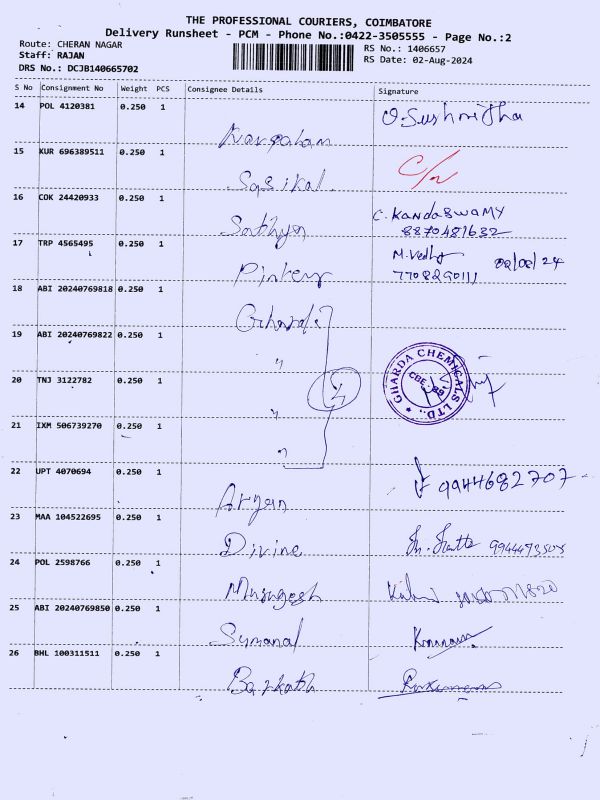 THE PROFESSIONAL COURIERS, COIMBATORE
Delivery Runsheet - PCM - Phone No.:0422-3505555 - Page No.:2
Route: CHERAN NAGAR
Staff: RAJAN
DRS No.: DCJB140665702
RS No.: 1406657
RS Date: 02-Aug-2024
S No Consignment No Weight PCS Consignee Details Signature
14 POL 4120381 0.250 1
15 KUR 696389511 0.250 1 C/n
Sasikal
16 COK 24420933 0.250 1 C. KANDASWAMY
Sathya 8870481632
17 TRP 4565495 0.250 1 02/08/24
7708290111
18 ABI 20240769818 0.250 1
Gharda
19 ABI 20240769822 0.250 1
"
20 TNJ 3122782 0.250 1
"
GHARDA CHEMICALS LTD.
21 IXM 506739270 0.250 1
"
22 UPT 4070694 0.250 1 9944682707
Aryan
23 MAA 104522695 0.250 1
Divine
24 POL 2598766 0.250 1
Murugesh
25 ABI 20240769850 0.250 1
Sumanal
26 BHL 100311511 0.250 1
Barkath